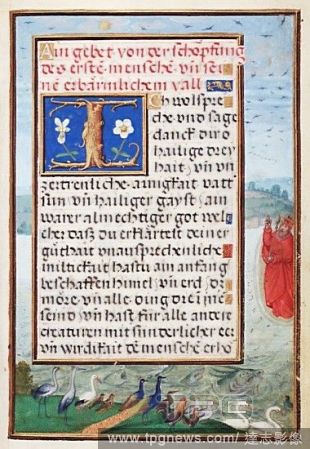 Ain gebet von der schöpfung
des erstē menschē vn̄ sei
ne erbärmlichem vall
Ich wolspre
che vnd sage
danck dir o
hailige drey
hait, vn̄ vn̄
zertrenliche ainigkait vatt
sun vn̄ hailiger gayst ain
warer almechtiger got wel
cher das du erklärtest deiner
gūthait vnausprechenliche
miltickait hastu am anfang
beschaffen himel vn̄ erd, dz
möre vn̄ alle ding die jne
seind vn̄ hast für alle andere
creaturen mit sunderlicher eer
vn̄ wirdikait dē menschē erhö
www.tpgnews.com/達志影像